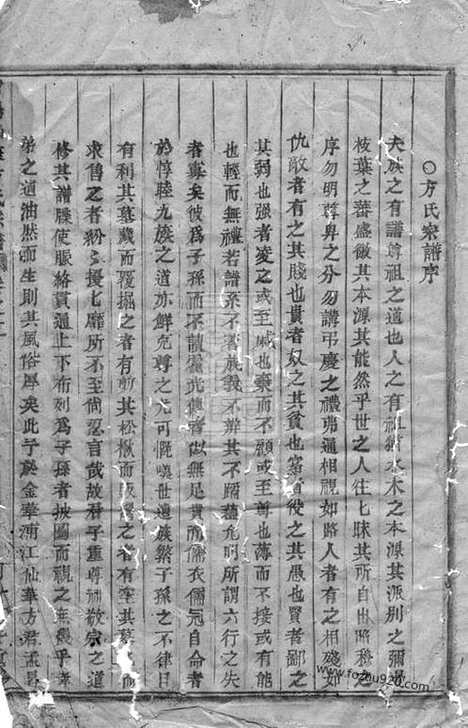 ○方氏宗譜序
夫族之有譜尊祖之道也人之有祖猶水木之本源其派別之彌
枝葉之蕃盛微其本源其能然乎世之人往七昧其所自出昭穆之
序勿明尊卑之分勿講弔慶之禮弗通相視如路人者有之相殘如
仇敵者有之其賤也貴者奴之其貧也富者役之其愚也賢者鄙之
其弱也強者凌之或至戚也棄而不顧或至尊也薄而不接或有能
也輕而無禮若譜系不著族義不辨其不蹈蘧危明所謂六行之失
者寡矣彼爲子孫而不讀書光使者似無足責而儒衣儒冠自命者
於惇睦九族之道亦鮮克尊之尤可慨嘆世遠族繁子孫之不律日
有利其墓藏而覆掘之者有斬其松楸而販之者有塗其墓
求售之者紛七擾七靡所不至尚忍言哉故君子重尊祖敬宗之道
修其譜牒使脈絡貫通上下布列爲子孫者披圖而視之無幾乎孝
弟之道油然而生則其風俗厚矣此予於金華浦江仙華方君孟
www.fozupu920.com